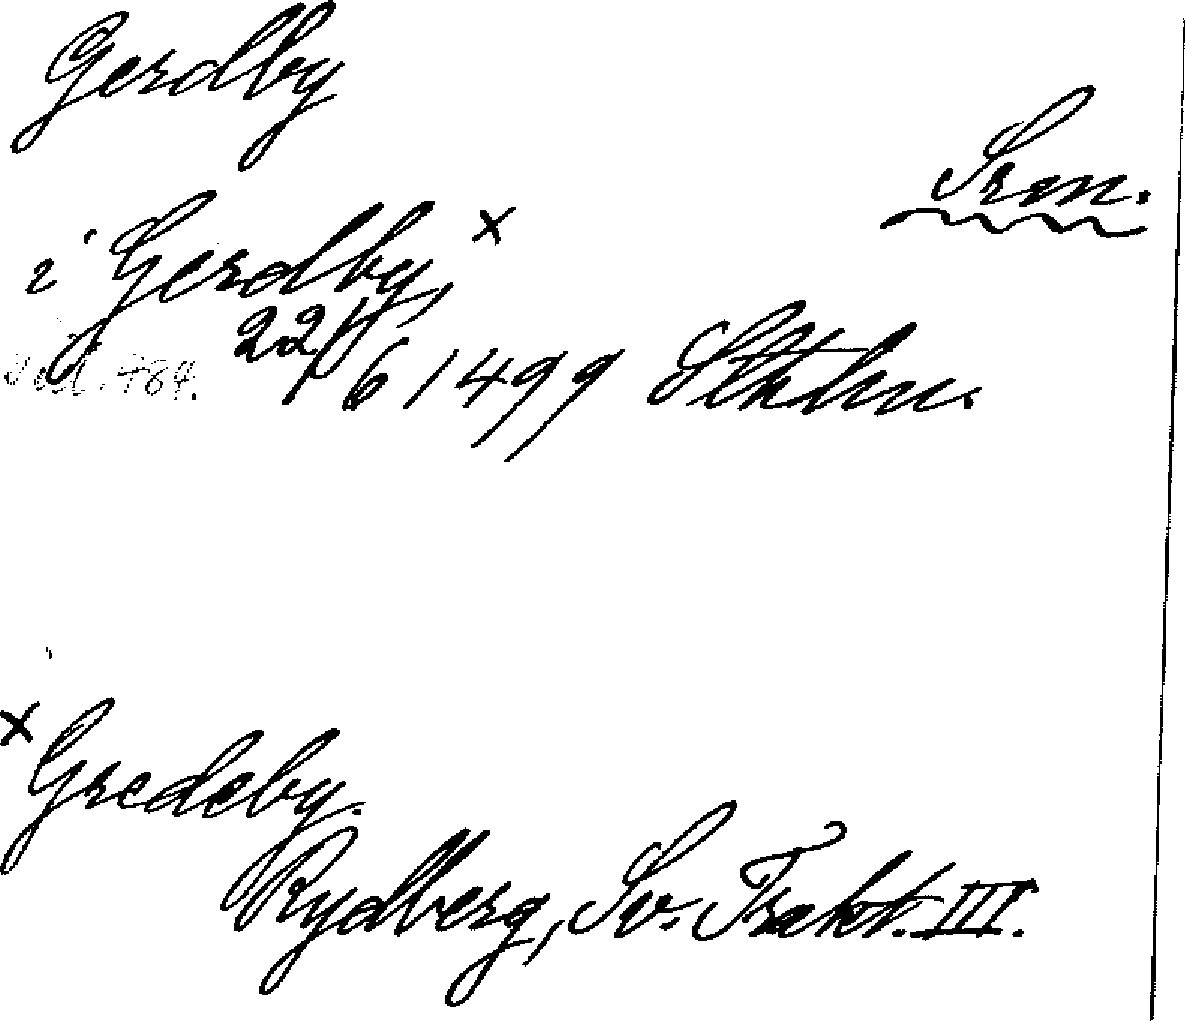 Gerdby
Srm.
i Gerdby, x
22/6 1499 Sthlm.
x Gredeby.
Rydberg, Sv. Trakt. III.